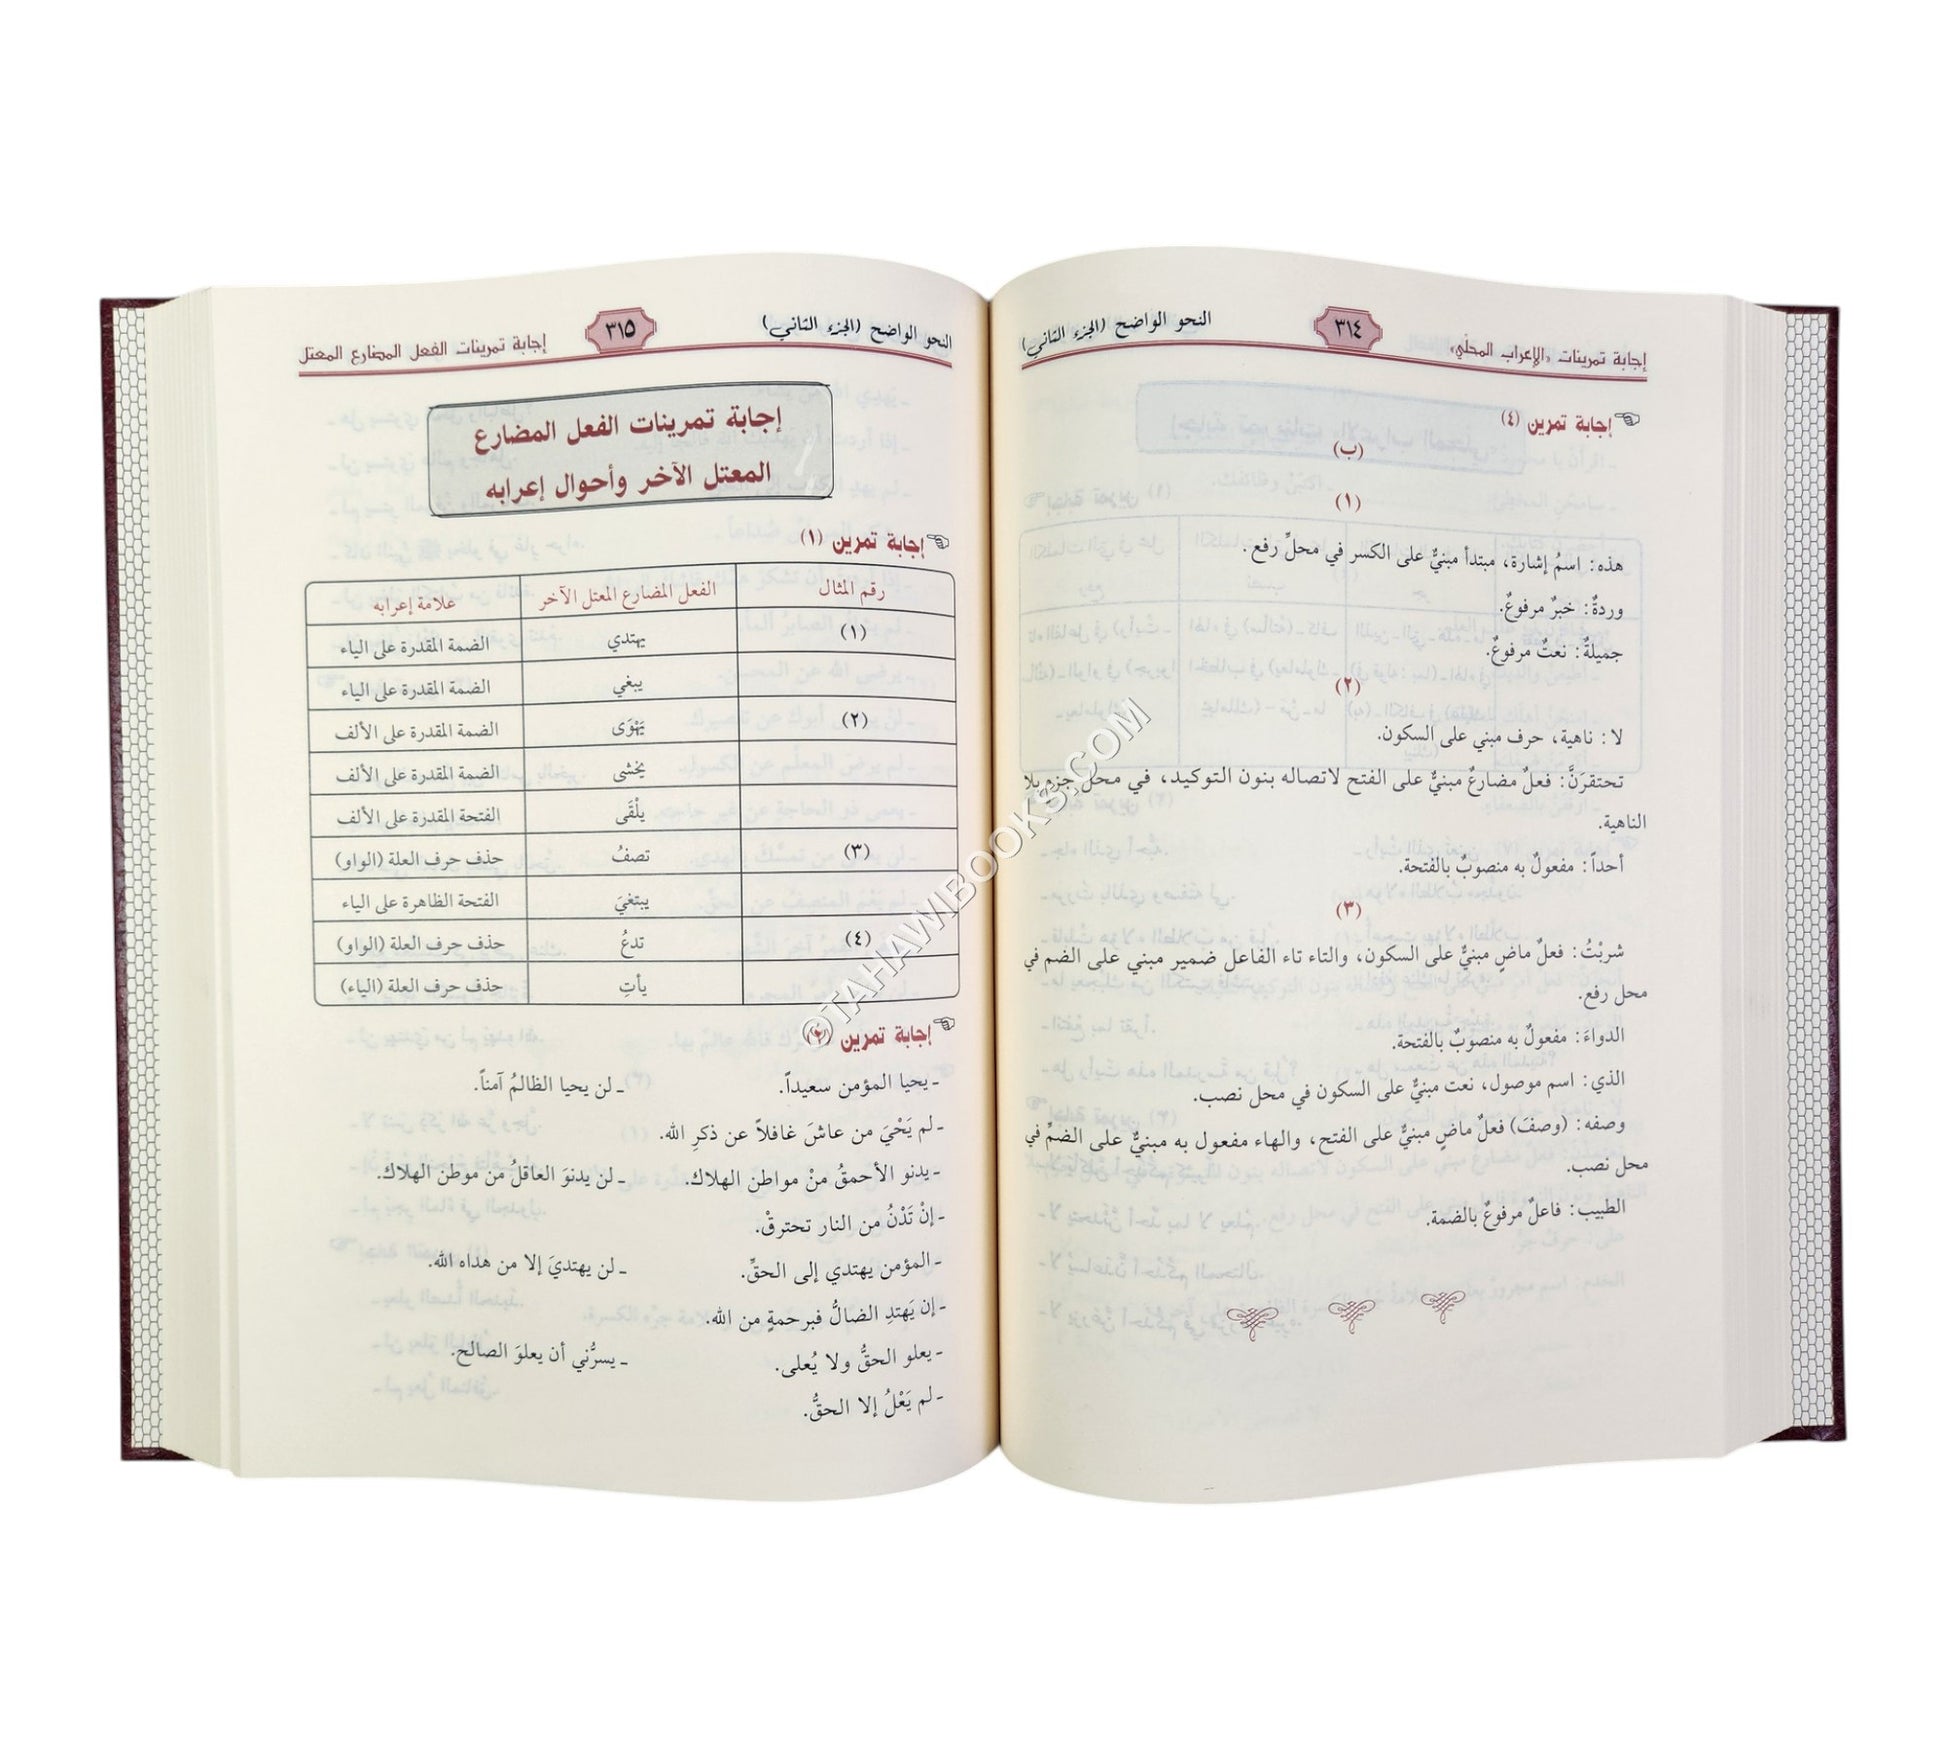 النحو الواضح (الجزء الثاني) ٣١٤ إجابة تمرينات «الإعراب المحلّي»
إجابة تمرين (٤)
(ب)
(١)
هذه: اسمُ إشارة، مبتدأ مبنيٌّ على الكسر في محلِّ رفع.
وردةٌ: خبرٌ مرفوعٌ.
جميلةٌ: نعتٌ مرفوعٌ.
(٢)
لا: ناهية، حرف مبني على السكون.
تحتقرَنَّ: فعلٌ مضارعٌ مبنيٌّ على الفتح لاتصاله بنون التوكيد، في محل جزم بلا
الناهية.
أحداً: مفعولٌ به منصوبٌ بالفتحة.
(٣)
شربْتُ: فعلٌ ماضٍ مبنيٌّ على السكون، والتاء تاء الفاعل ضمير مبني على الضم في
محل رفع.
الدواءَ: مفعولٌ به منصوبٌ بالفتحة.
الذي: اسم موصول، نعت مبنيٌّ على السكون في محل نصب.
وصفه: (وصفَ) فعلٌ ماضٍ مبنيٌّ على الفتح، والهاء مفعول به مبنيٌّ على الضمِّ في
محل نصب.
الطبيب: فاعلٌ مرفوعٌ بالضمة.
النحو الواضح (الجزء الثاني) ٣١٥ إجابة تمرينات الفعل المضارع المعتل
إجابة تمرينات الفعل المضارع
المعتل الآخر وأحوال إعرابه
إجابة تمرين (١)
رقم المثال الفعل المضارع المعتل الآخر علامة إعرابه
(١) يهتدي الضمة المقدرة على الياء
يبغي الضمة المقدرة على الياء
(٢) يَهْوَى الضمة المقدرة على الألف
يخشى الضمة المقدرة على الألف
يلْقَى الفتحة المقدرة على الألف
(٣) تصفُ حذف حرف العلة (الواو)
يبتغيَ الفتحة الظاهرة على الياء
(٤) تدعُ حذف حرف العلة (الواو)
يأتِ حذف حرف العلة (الياء)
إجابة تمرين (٢)
ـ يحيا المؤمن سعيداً. ـ لن يحيا الظالمُ آمناً.
ـ لم يَحْيَ من عاشَ غافلاً عن ذكرِ الله.
ـ يدنو الأحمقُ منْ مواطن الهلاك. ـ لن يدنوَ العاقلُ من موطن الهلاك.
ـ إنْ تَدْنُ من النار تحترقْ.
ـ المؤمن يهتدي إلى الحقِّ. ـ لن يهتديَ إلا من هداه الله.
ـ إن يَهتدِ الضالُّ فبرحمةٍ من الله.
ـ يعلو الحقُّ ولا يُعلى. ـ يسرُّني أن يعلوَ الصالح.
ـ لم يَعْلُ إلا الحقُّ.
©TAHAWIBOOKS.COM